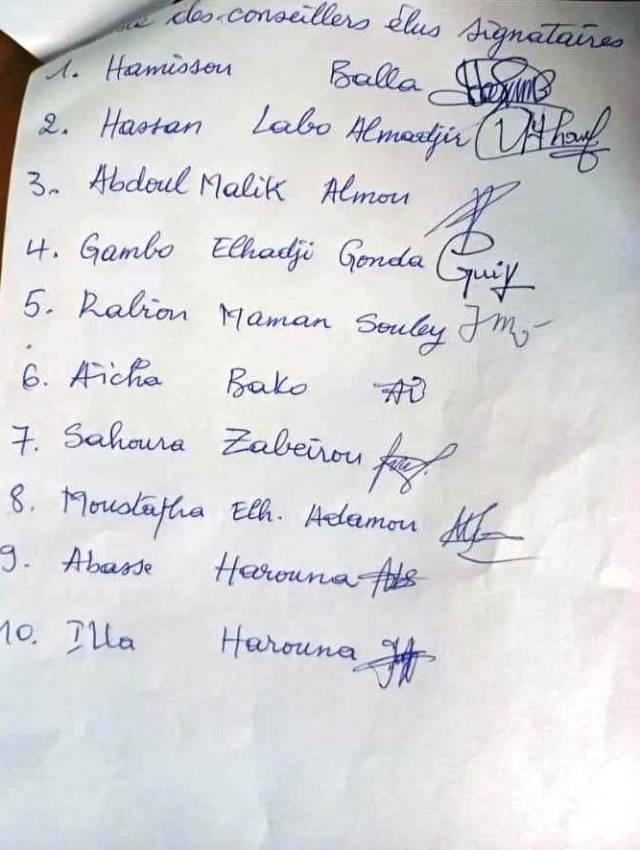 des conseillers élus signataires
1. Hamissou Balla
2. Hassan Labo Almadjir
3. Abdoul Malik Almou
4. Gambo Elhadji Gonda
5. Rabiou Maman Souley
6. Aicha Bako AB
7. Sahoura Zabeirou
8. Moustapha Elh. Adamou
9. Abasse Harouna
10. Illa Harouna